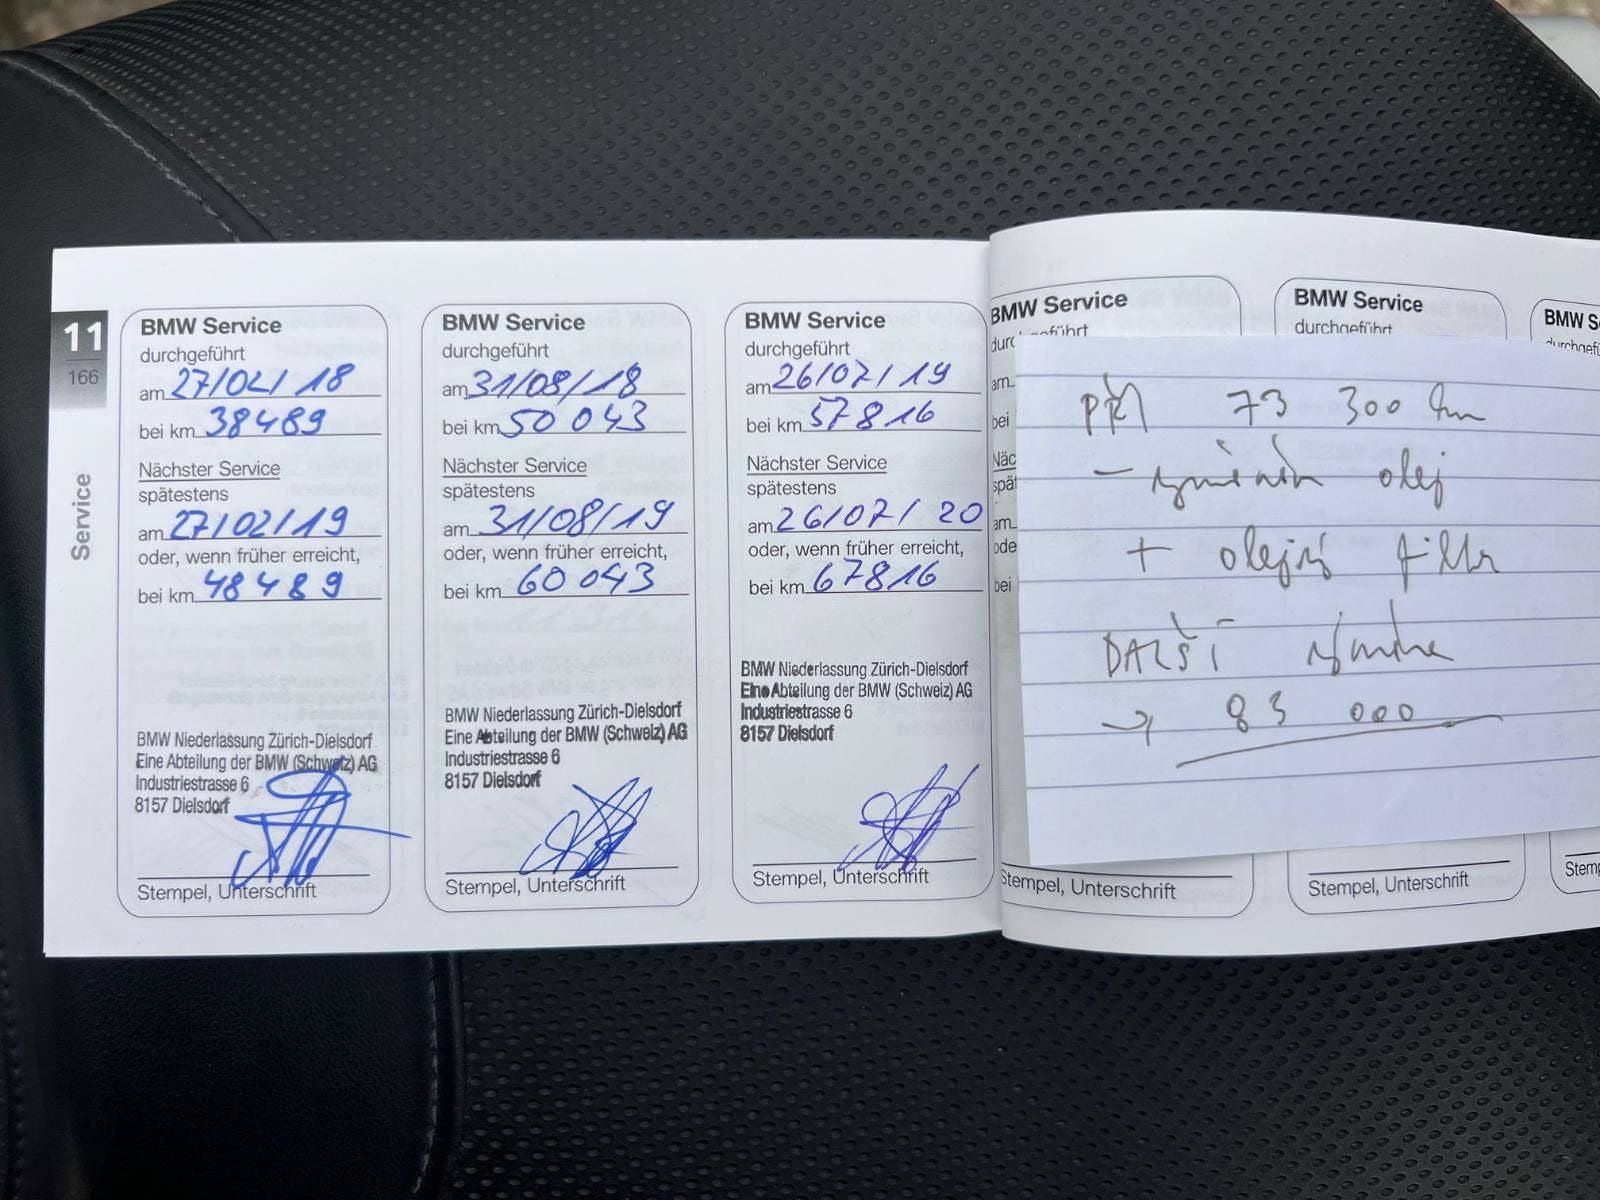 11
166
Service
BMW Service
durchgeführt
am 27/02/18
bei km 38489
Nächster Service
spätestens
am 27/02/19
oder, wenn früher erreicht,
bei km 48489
BMW Niederlassung Zürich-Dielsdorf
Eine Abteilung der BMW (Schweiz) AG
Industriestrasse 6
8157 Dielsdorf
Stempel, Unterschrift
BMW Service
durchgeführt
am 31/08/18
bei km 50 043
Nächster Service
spätestens
am 31/08/19
oder, wenn früher erreicht,
bei km 60 043
BMW Niederlassung Zürich-Dielsdorf
Eine Abteilung der BMW (Schweiz) AG
Industriestrasse 6
8157 Dielsdorf
Stempel, Unterschrift
BMW Service
durchgeführt
am 26/07/19
bei km 57816
Nächster Service
spätestens
am 26/07/20
oder, wenn früher erreicht,
bei km 67816
BMW Niederlassung Zürich-Dielsdorf
Eine Abteilung der BMW (Schweiz) AG
Industriestrasse 6
8157 Dielsdorf
Stempel, Unterschrift
BMW Service
am
bei
am
bei
Stempel, Unterschrift
BMW Service
durchgeführt
Stempel, Unterschrift
BMW S
durchgefü
Stemp
PŘI 73 300 km
- výměna olej
+ olejový filtr
DALŠÍ výměna
→ 83 000